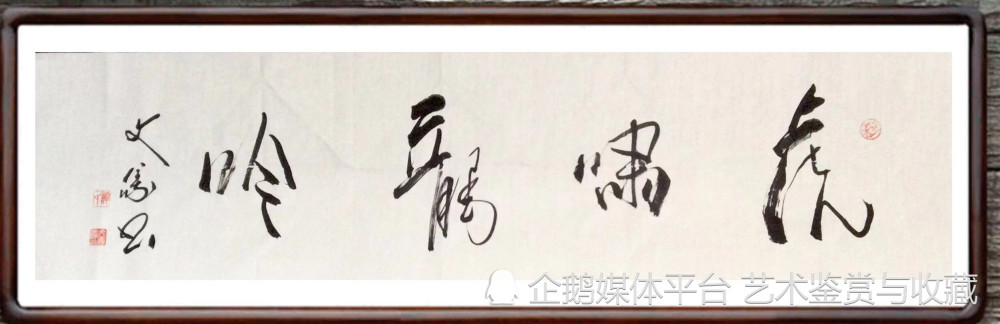 虎嘯龍吟
文 书
企鹅媒体平台 艺术鉴赏与收藏